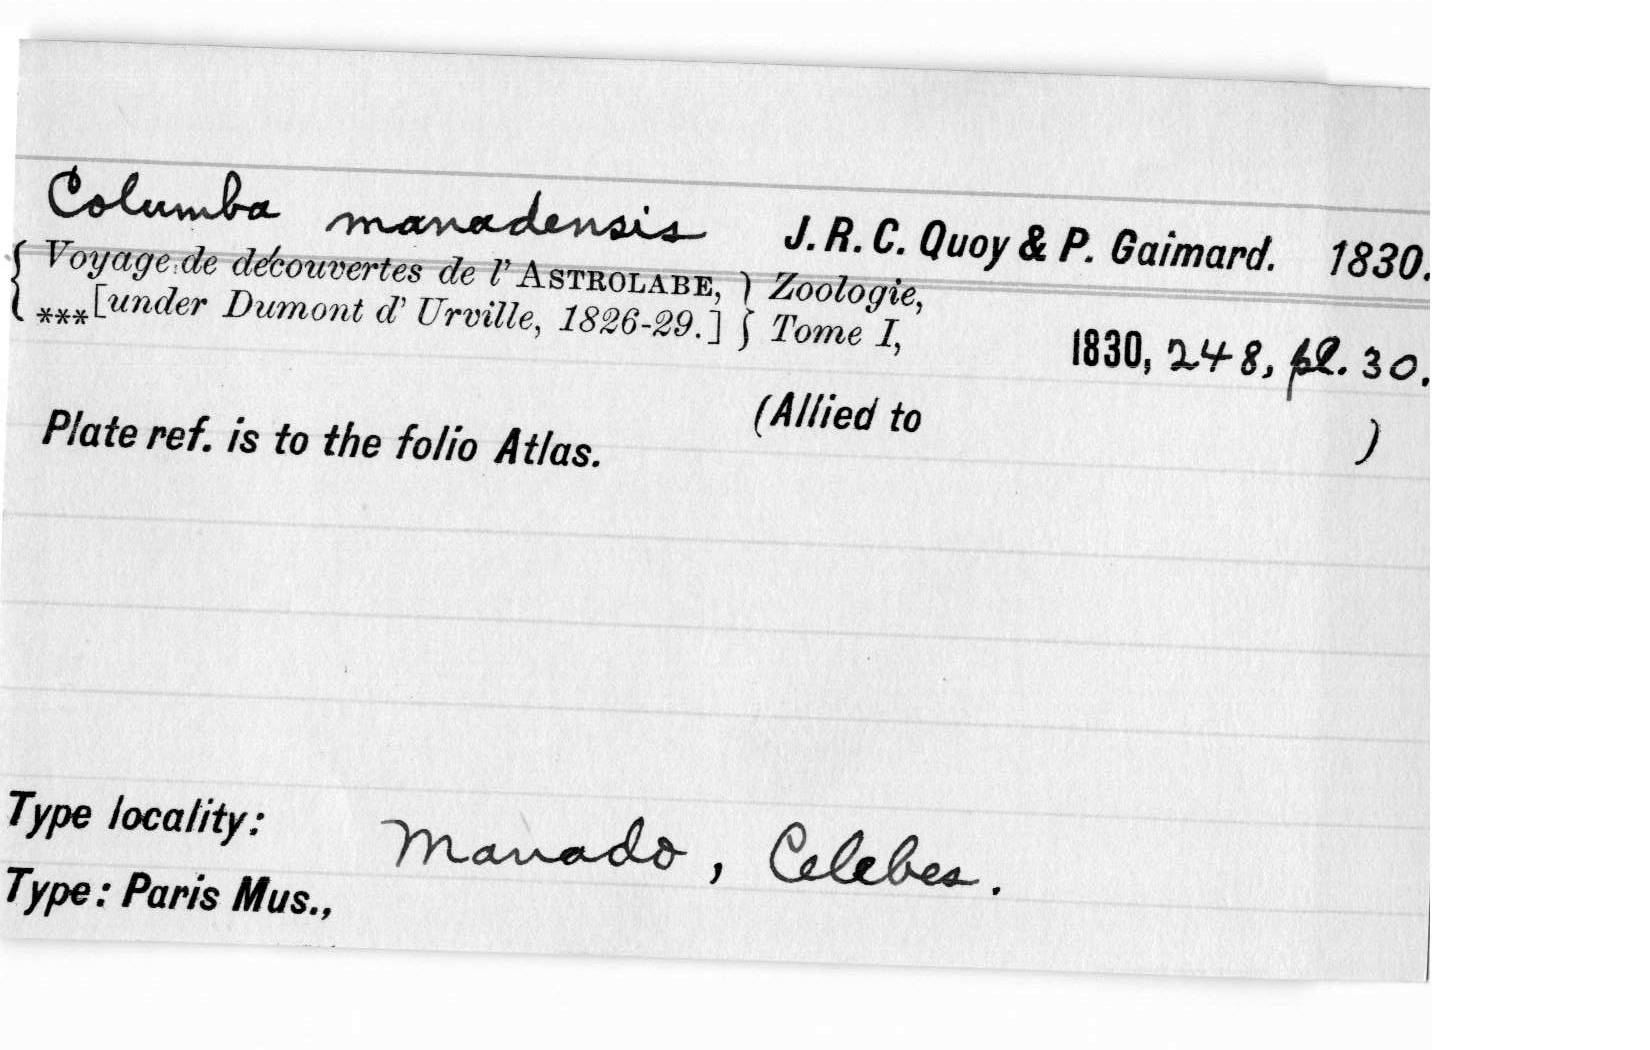 Columba manadensis J. R. C. Quoy & P. Gaimard. 1830.
{ Voyage de découvertes de l' ASTROLABE, } Zoologie,
***[under Dumont d' Urville, 1826-29.] } Tome I,
1830, 248, pl. 30.
(Allied to )
Plate ref. is to the folio Atlas.
Type locality: Manado, Celebes.
Type: Paris Mus.,